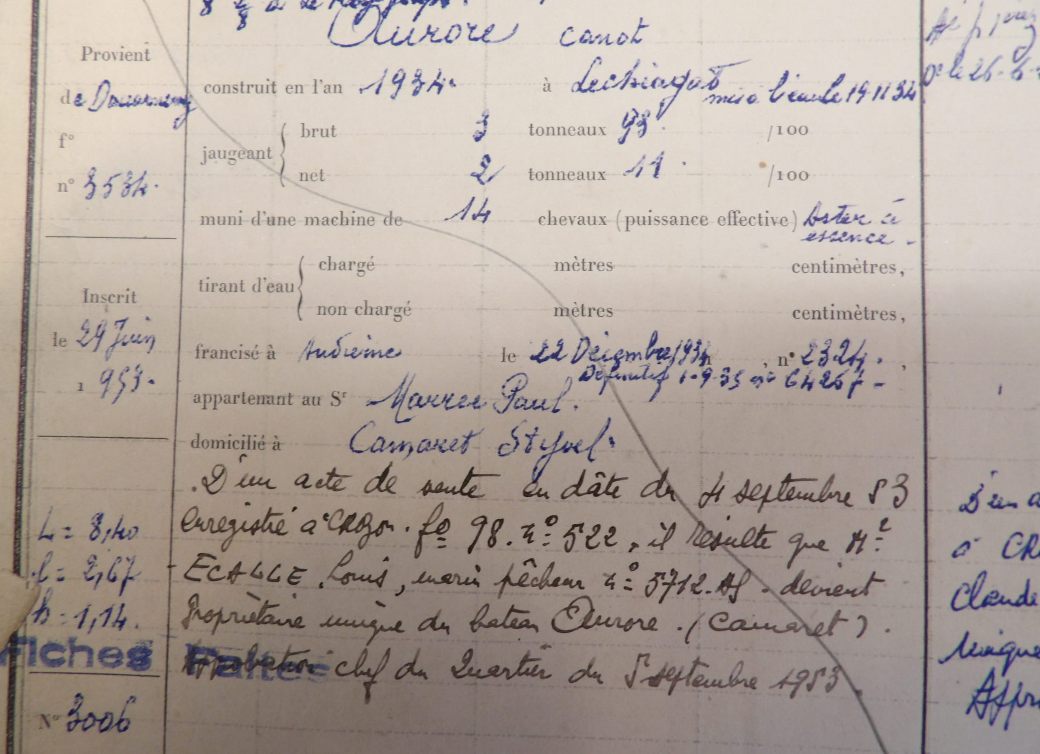 Aurore canot
Provient
de Douarnenez
f°
n° 3534.
construit en l'an 1934. à Lechiagat mis à l'eau le 19 11 34
jaugeant brut 3 tonneaux 93 /100
net 2 tonneaux 11 /100
muni d'une machine de 14 chevaux (puissance effective) Aster à
essence -
tirant d'eau chargé mètres centimètres,
non chargé mètres centimètres,
Inscrit
le 29 Juin
1953.
francisé à Audierne le 22 Décembre 1934, n° 2324.
Définitif 1-9-35 n° 64267-
appartenant au Sr Paul.
domicilié à Camaret Styvel.
D'un acte de vente en dâte du 4 septembre 53
enregistré à CROZON. f° 98. n° 522, il résulte que Mr
ECALLE Louis, marin pêcheur n° 5712. devient
Propriétaire unique du bateau Aurore. (Camaret).
Approbation chef du Quartier du 5 septembre 1953.
L = 8,40
l = 2,67
h = 1,14.
Fiches Faites
N° 3006
D'un a
à CR
Claude
unique
Appro